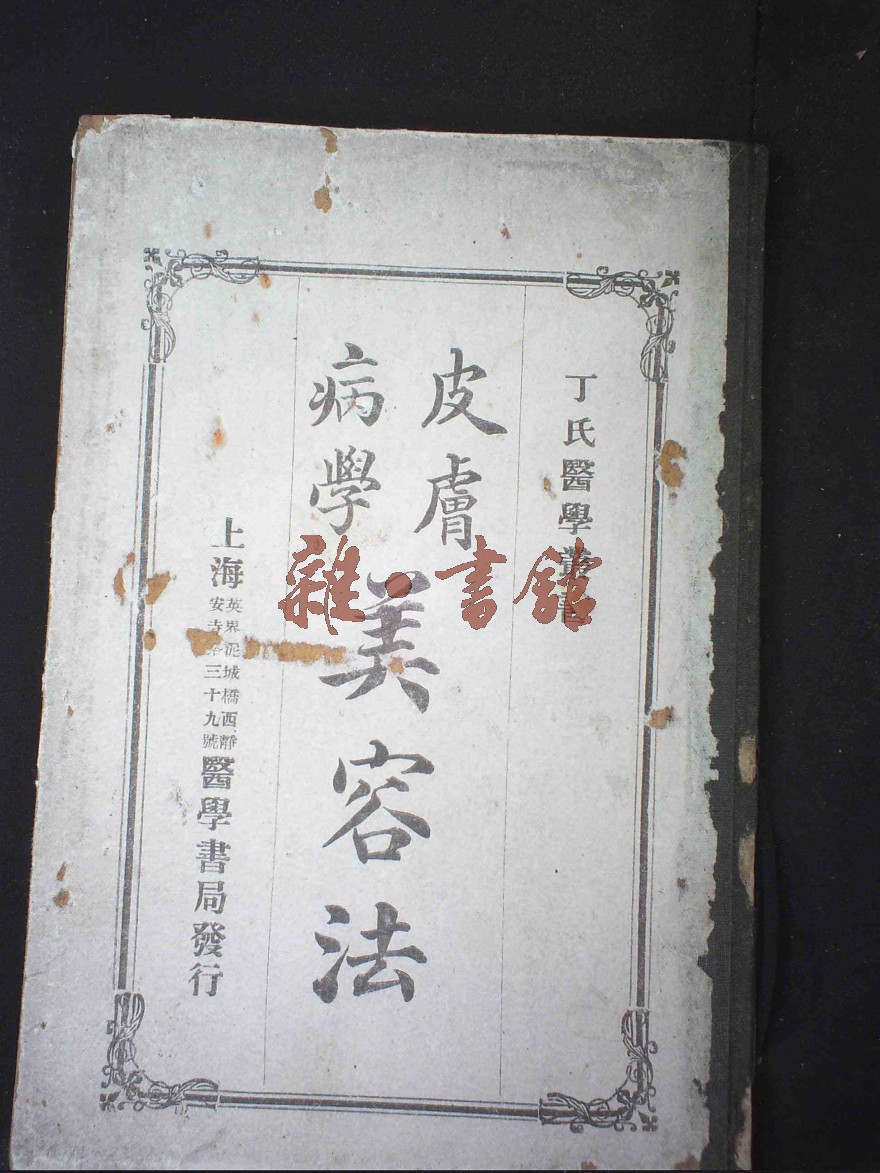 丁氏醫學叢書
皮膚
病學
美容法
上海
英界泥城橋西靜
安寺三十九號
醫學書局發行
雜·書館